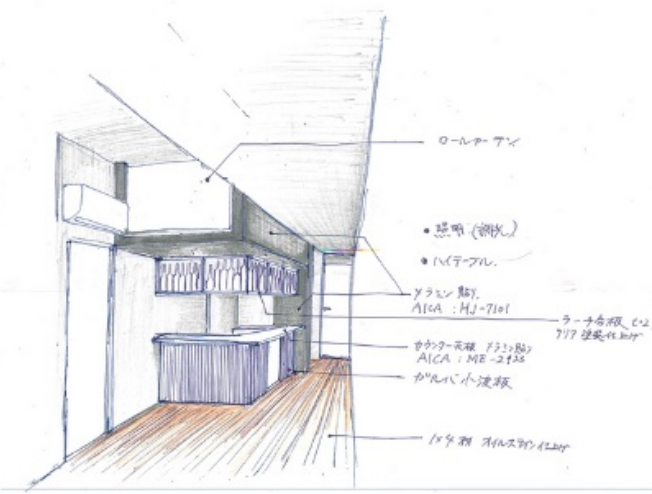 ロールカーテン
・照明 (調光)
・ハイテーブル.
メラミン貼り.
AICA : HJ-7101
ラーチ合板
クリア塗装仕上げ
カウンター天板 メラミン貼り
AICA : ME-
ガルバ小波板
1×4材 オイルステイン仕上げ